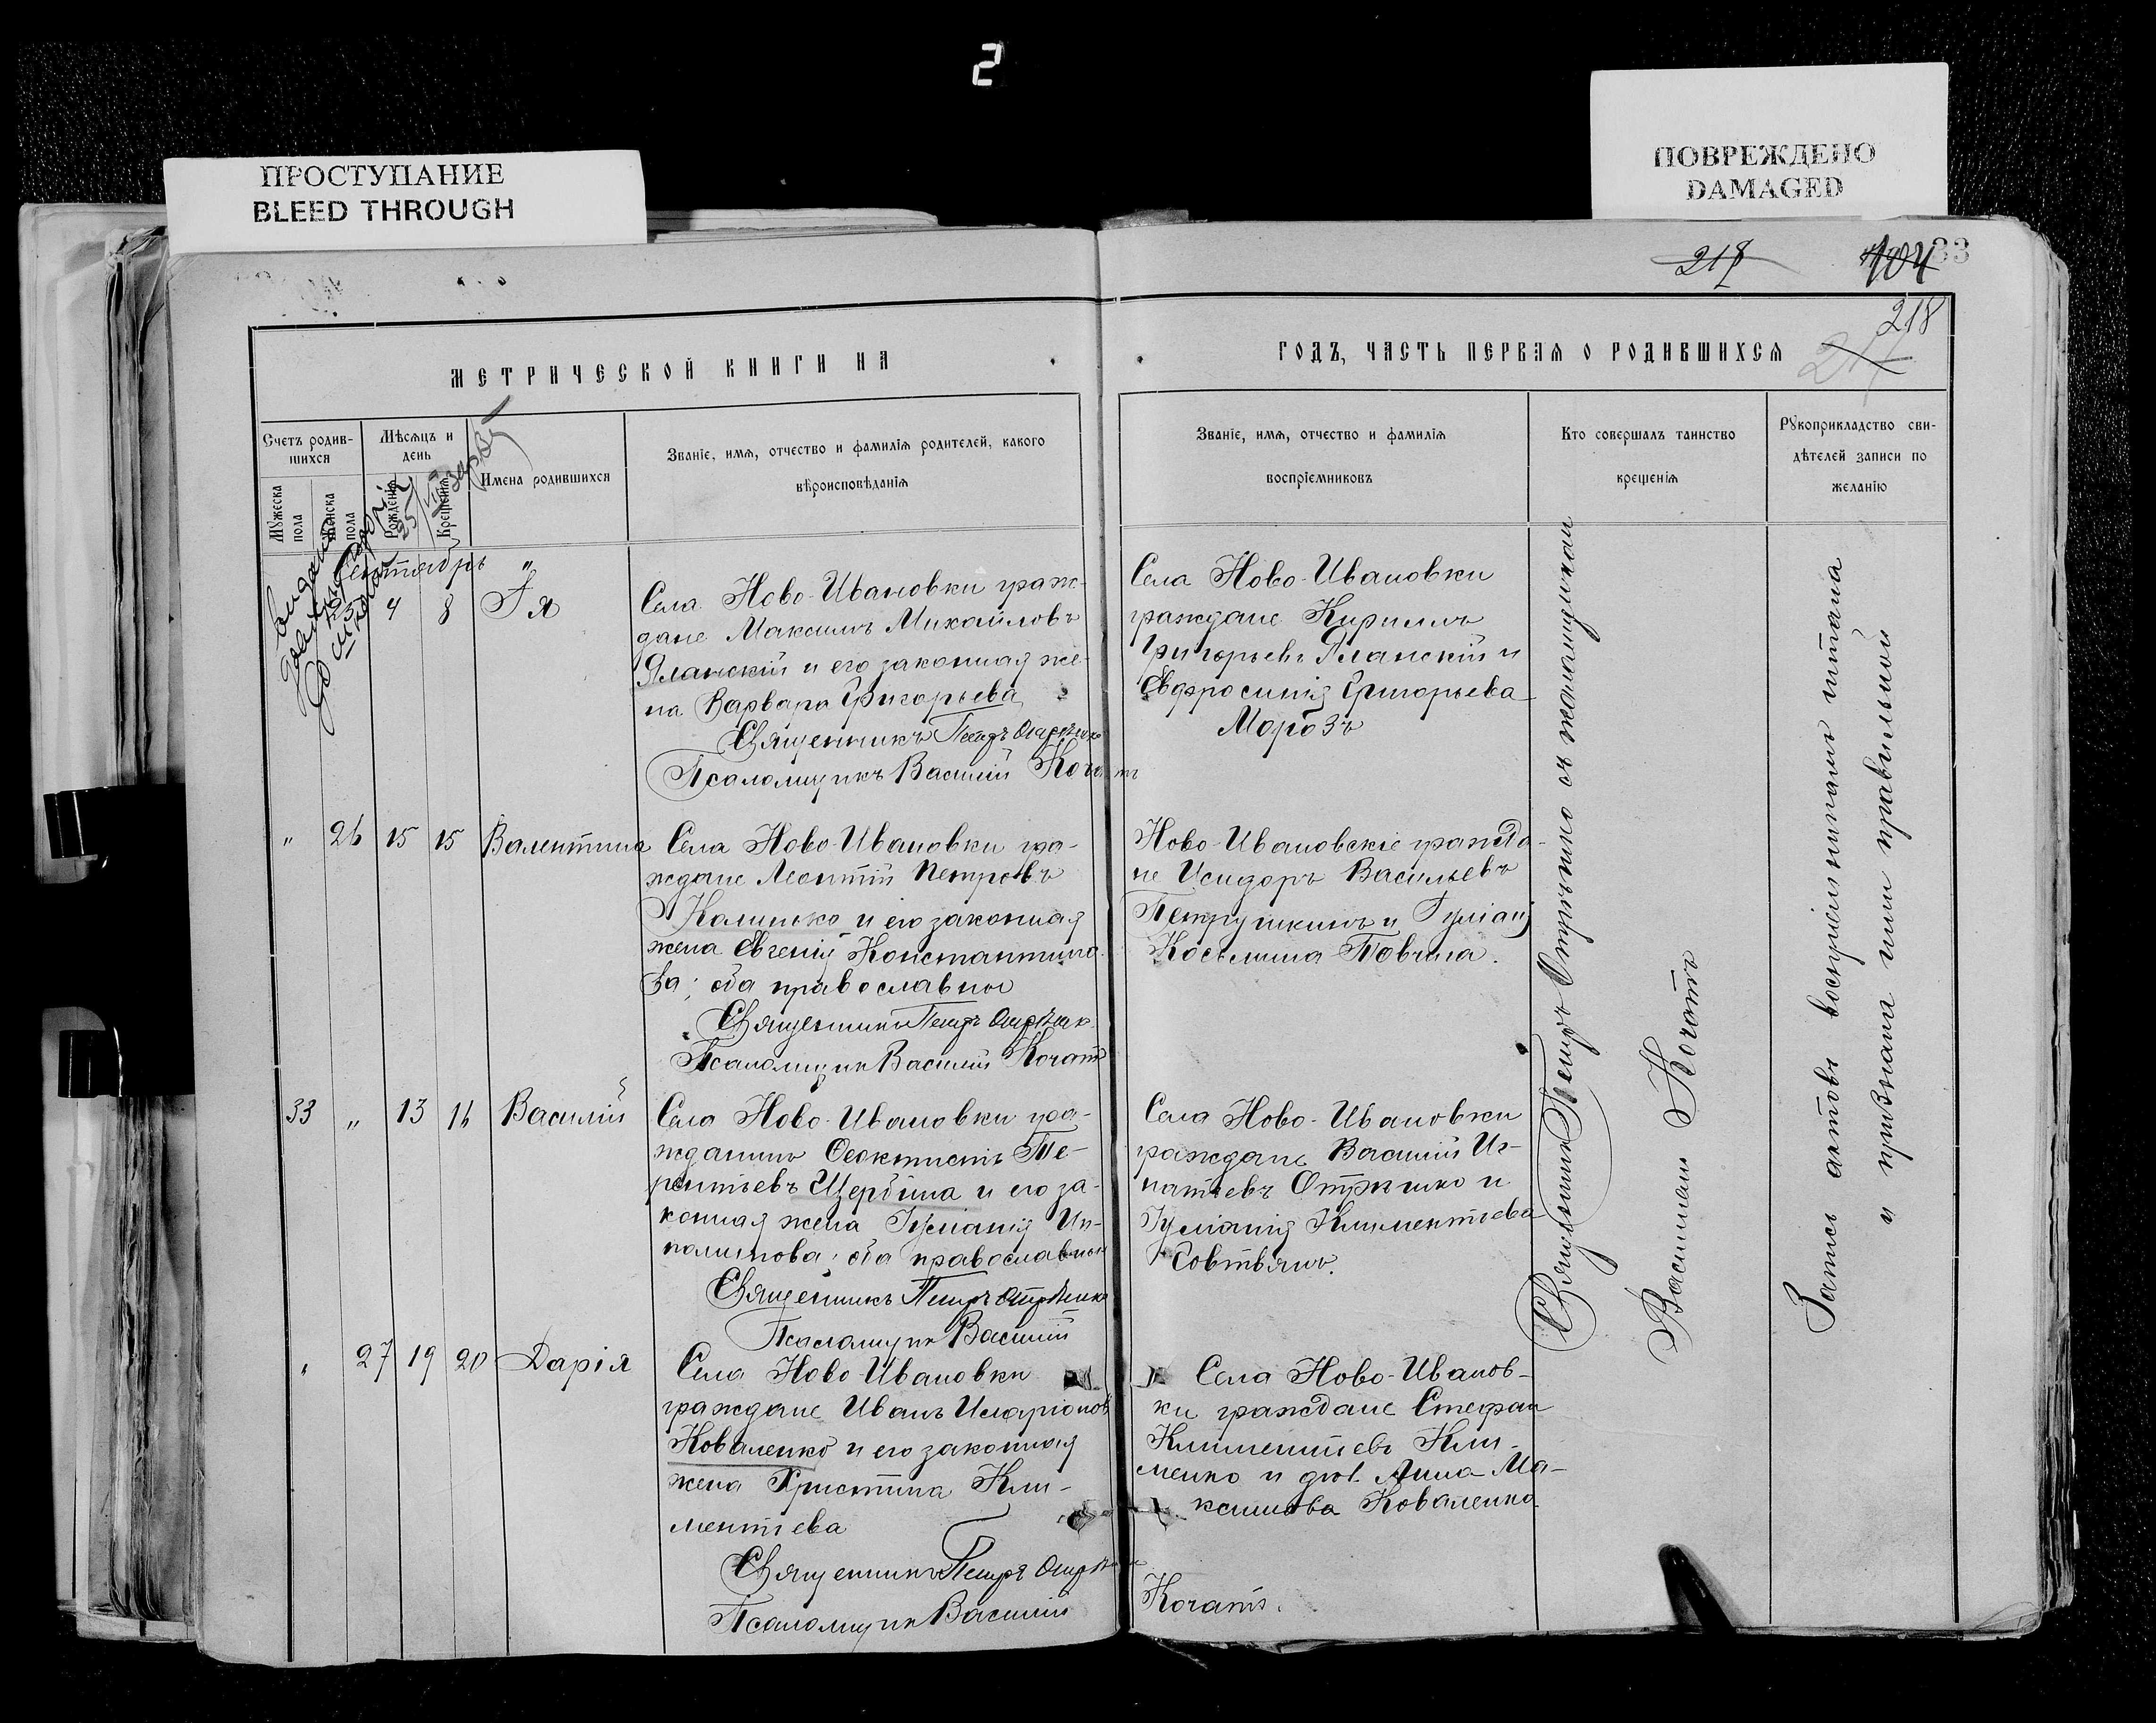 2
ПРОСТУПАНИЕ
BLEED THROUGH
ПОВРЕЖДЕНО
DAMAGED
218
104
33
218
МЕТРИЧЕСКОЙ КНИГИ НА
ГОДЪ, ЧАСТЬ ПЕРВАЯ О РОДИВШИХСЯ
Счетъ родив-
шихся
Мужеска пола
Женска пола
Мѣсяцъ и
день
Рожденія
Крещенія
Имена родившихся
Званіе, имя, отчество и фамилія родителей, какого
вѣроисповѣданія
Званіе, имя, отчество и фамилія
воспріемниковъ
Кто совершалъ таинство
крещенія
Рукоприкладство сви-
дѣтелей записи по
желанію
Сентябрь
25 4 8 Ія
Села Ново-Ивановки граж-
дане Максимъ Михайловъ
Яланскій и его законная же-
на Варвара Григорьева
Священникъ Петръ Отрѣшко
Псаломщикъ Василій Когатъ
Села Ново-Ивановки
граждане Кириллъ
Григорьевъ Яланскій и
Евфросинія Григорьева
Морозъ
" 26 15 15 Валентина
Села Ново-Ивановки гра-
ждане Леонтій Петровъ
Калинко и его законная
жена Евгенія Константино-
ва; оба православные
Священникъ Петръ Отрѣшко
Псаломщикъ Василій Когатъ
Ново-Ивановскіе гражда-
не Исидоръ Васильевъ
Петрушкинъ и Іуліанія
Косьмина Товчила.
33 " 13 16 Василій
Села Ново-Ивановки гра-
жданинъ Феоктистъ Те-
рентьевъ Щербина и его за-
конная жена Іуліанія Ип-
политова; оба православные
Священникъ Петръ Отрѣшко
Псаломщикъ Василій
Села Ново-Ивановки
граждане Василій Иг-
натьевъ Отрѣшко и
Іуліанія Климентьева
" 27 19 20 Дарія
Села Ново-Ивановки
граждане Иванъ Иларіоновъ
Коваленко и его законная
жена Христина Кли-
ментьева
Священникъ Петръ Отрѣшко
Псаломщикъ Василій
Села Ново-Иванов-
ки граждане Стефан
Климентьевъ Кли-
менко и дѣв. Анна Ма-
ксимова Коваленко
Когатъ.
Священникъ Петръ Отрѣшко съ псаломщикомъ
Василіем Когатъ
Запись актовъ воспріемникамъ читана
и признана ими правильной